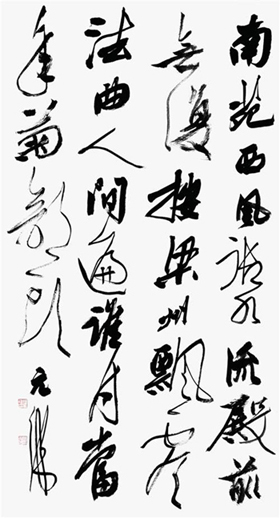 南苑西風御水流殿前
無復梁州飄零
法曲人間遍誰付當
年菊部頭
元